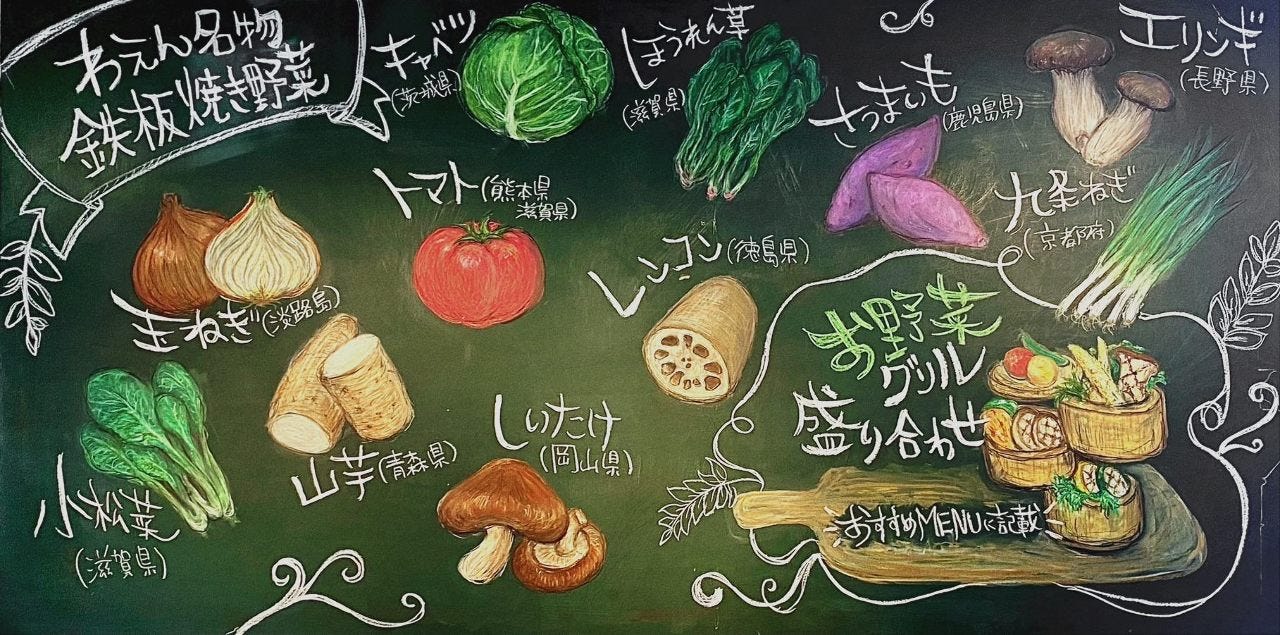 わえん名物
鉄板焼き野菜
キャベツ
(茨城県)
ほうれん草
(滋賀県)
さつまいも
(鹿児島県)
エリンギ
(長野県)
トマト(熊本県
滋賀県)
九条ねぎ
(京都府)
レンコン(徳島県)
玉ねぎ(淡路島)
お野菜
グリル
盛り合わせ
おすすめMENUに記載
しいたけ
(岡山県)
山芋(青森県)
小松菜
(滋賀県)